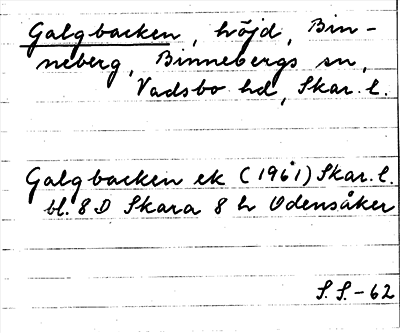 Galgbacken, höjd, Bin-
neberg, Binnebergs sn,
Vadsbo hd, Skar. l.
Galgbacken ek (1961) Skar. l.
bl. 8 D Skara 8 h Odensåker
S. S. - 62